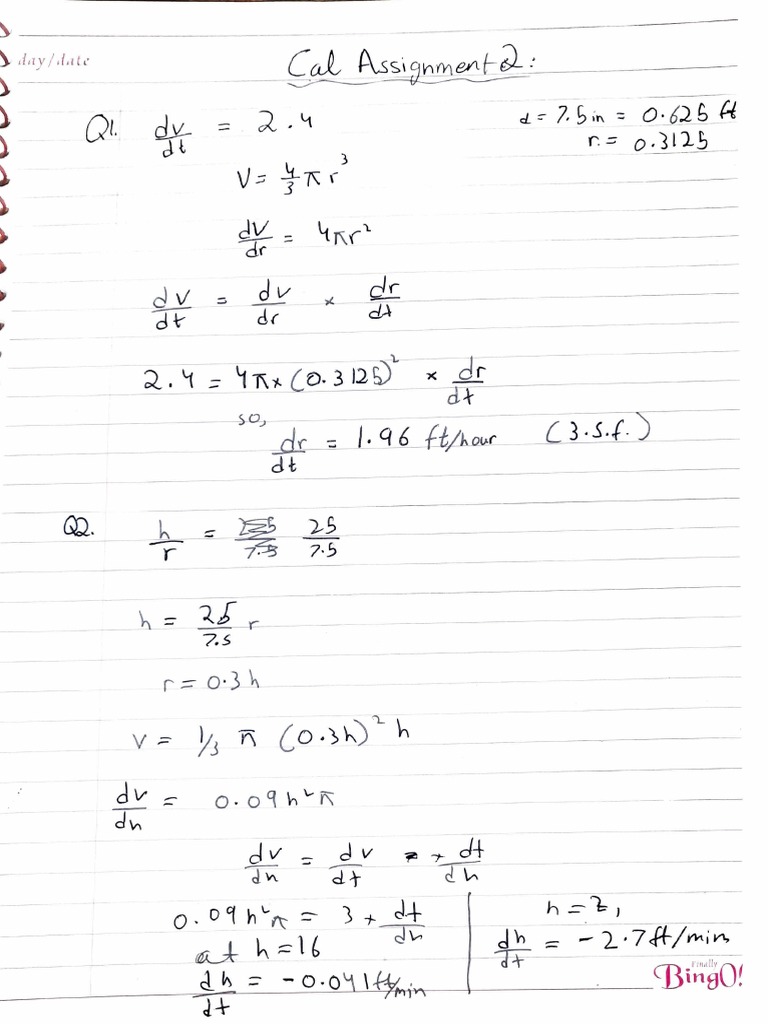 day/date
Cal Assignment 2:
Q1. dv/dt = 2.4
d = 7.5 in = 0.625 ft
r = 0.3125
V = 4/3 π r³
dV/dr = 4πr²
dv/dt = dv/dr × dr/dt
2.4 = 4π × (0.3125)² × dr/dt
so,
dr/dt = 1.96 ft/hour (3.s.f.)
Q2. h/r = 25/7.5
h = 25/7.5 r
r = 0.3h
v = 1/3 π (0.3h)² h
dv/dh = 0.09h²π
dv/dh = dv/dt × dt/dh
0.09h²π = 3 × dt/dh
at h = 16
dh/dt = -0.041 ft/min
h = 2,
dh/dt = -2.7 ft/min
Finally
BingO!